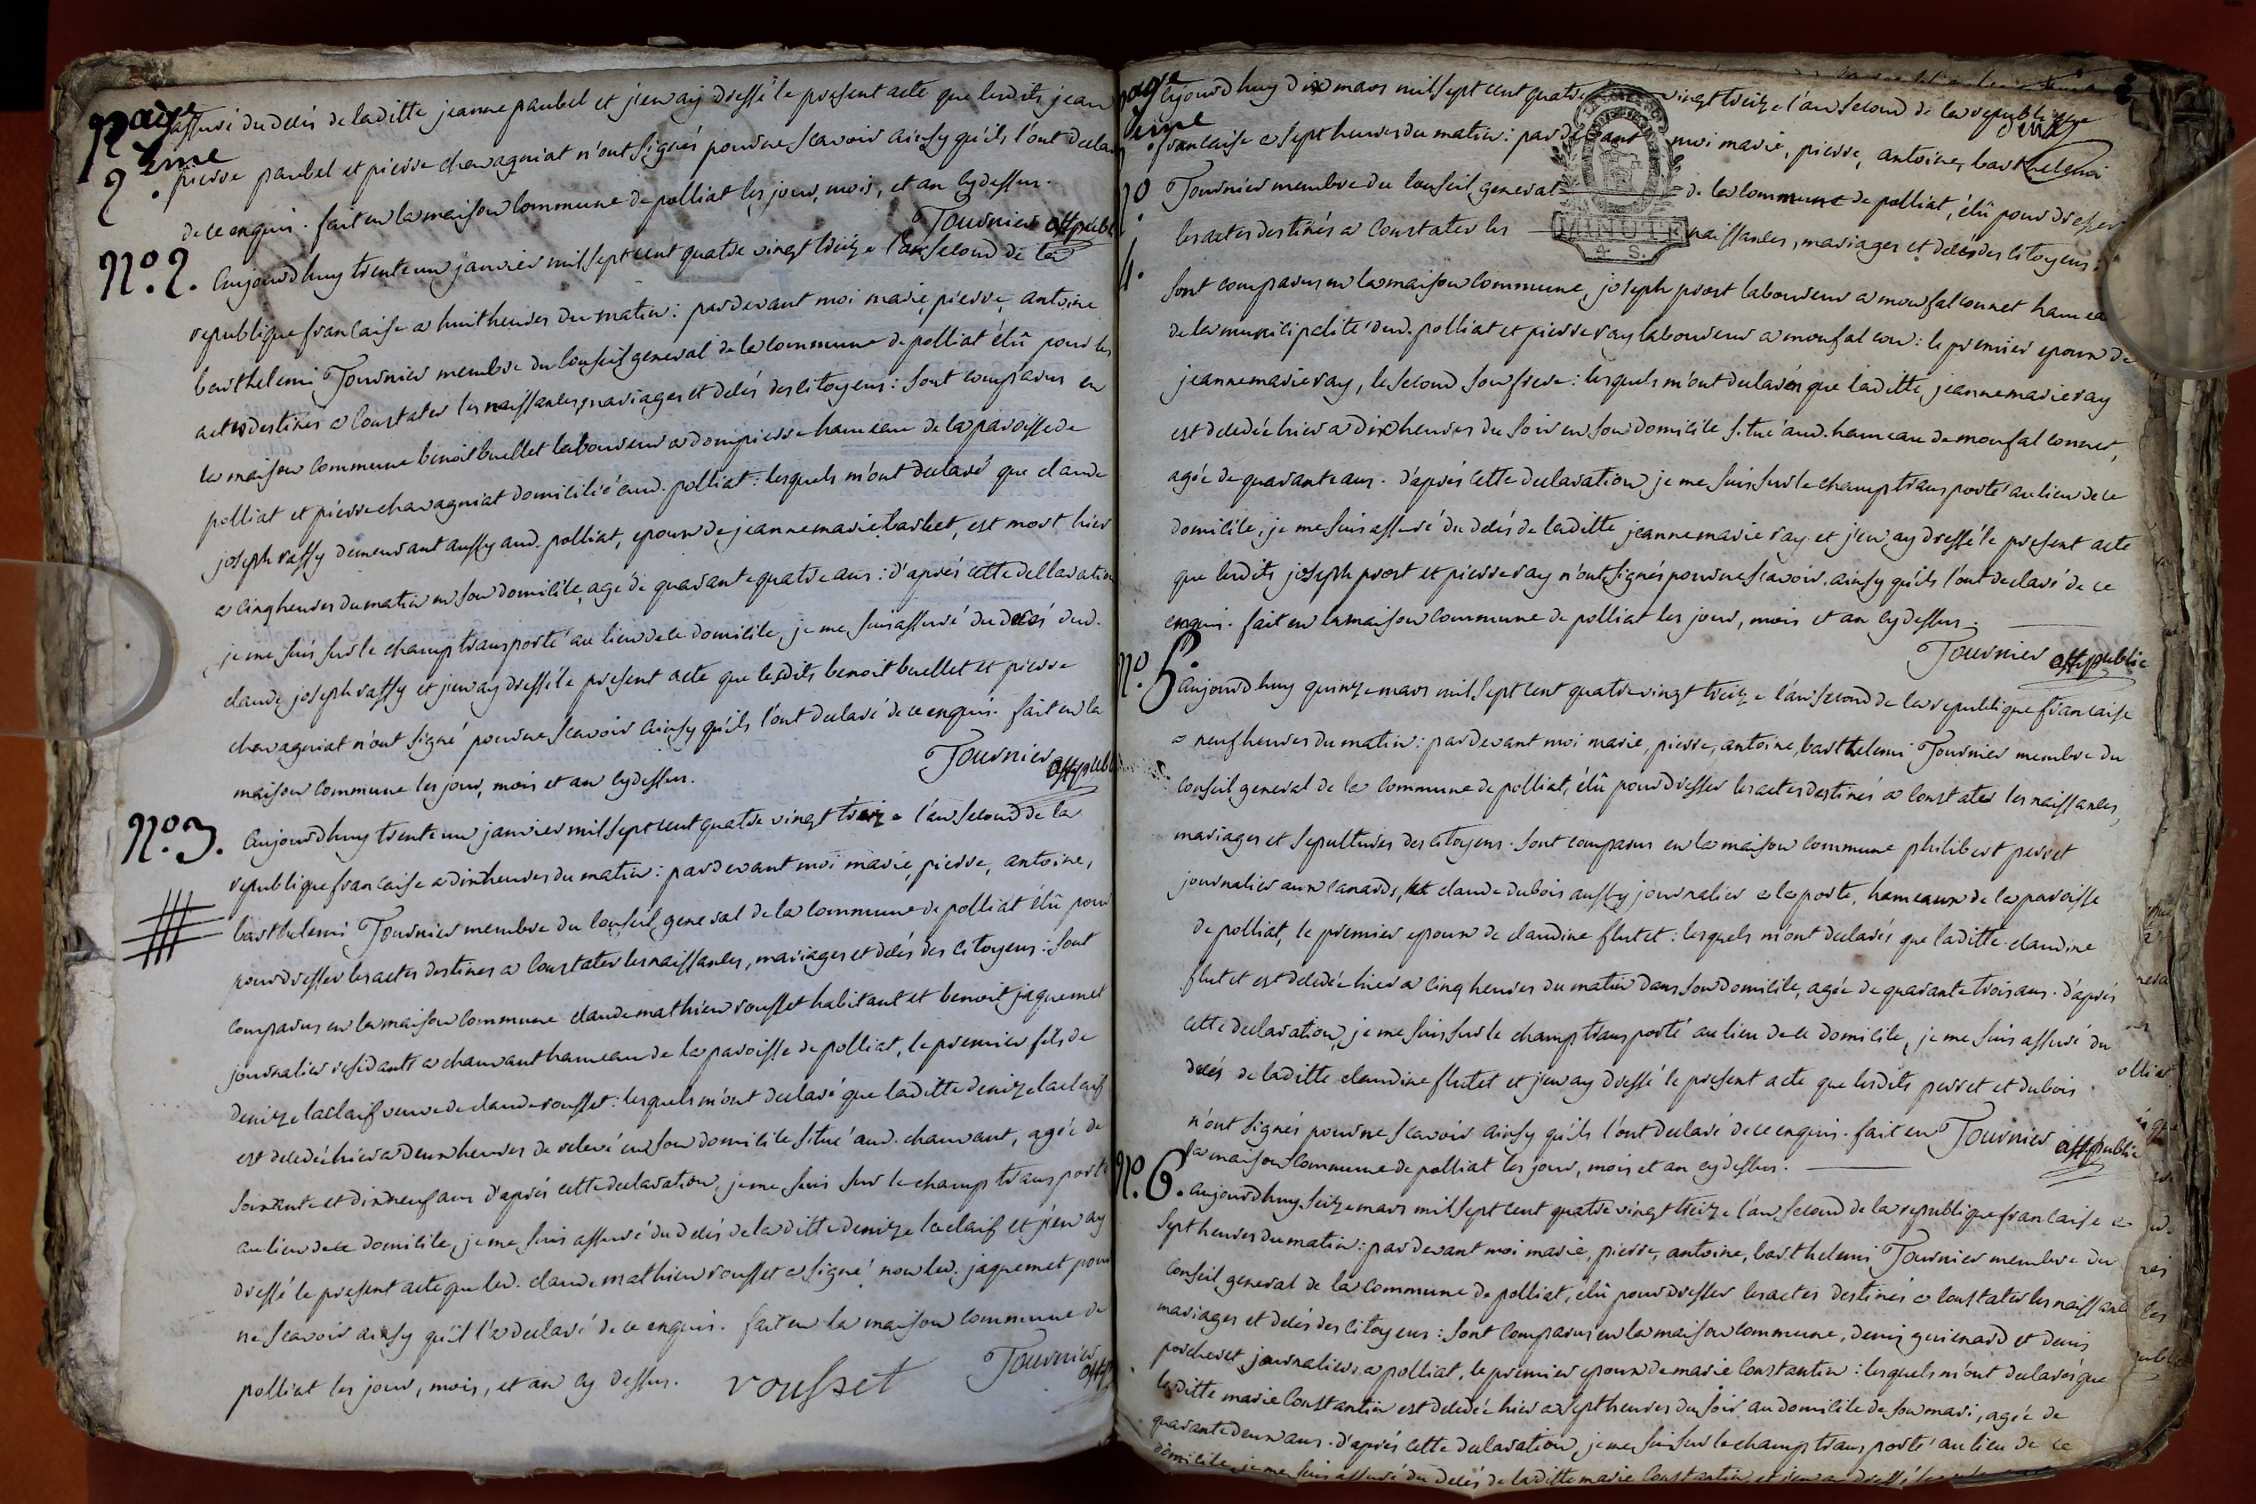 page
2 eme
assuré du dèces de laditte jeanne paubel et j'en ay dressé le present acte que lesdits jean
pierre paubel et pierre chavagniat n'ont signés pour ne scavoir ainsy qu'ils l'ont decla
de ce enquis. fait en la maison commune de polliat les jour, mois, et an cy dessus.
Tournier off publ
N.o 2. aujourdhuy trente un janvier mil sept cent quatre vingt treize l'an second de la
republique francaise a huit heures du matin: par devant moi marie, pierre, antoine
barthelemi Tournier membre du conseil general de la commune de polliat élû pour les
actes destinés a constater les naissances, mariages et decés des citoyens: sont comparus en
la maison commune benoit buellet laboureur a dompierre hameau de la paroisse de
polliat et pierre chavagniat domicilié aud. polliat: lesquels m'ont declaré que claude
joseph raffy demeurant aussy aud. polliat, epoux de jeanne marie barbet, est mort hier
a cinq heures du matin en son domicile, agé de quarante quatre ans: d'aprés cette dellaration
je me suis sur le champ transporté au lieu de ce domicile, je me suis assuré du decés dud.
claude joseph raffy et j'en ay dressé le present acte que lesdits benoit buellet et pierre
chavagniat n'ont signé pour ne scavoir ainsy qu'ils l'ont declaré de ce enquis. fait en la
maison commune les jour, mois et an cy dessus.
Tournier off publ
N.o 3. aujourdhuy trente un janvier mil sept cent quatre vingt treize l'an second de la
republique francaise a dix heures du matin: par devant moi marie, pierre, antoine,
barthelemi Tournier membre du conseil general de la commune de polliat élû pour
pour dresser les actes destines a constater les naissances, mariages et decés des citoyens: sont
comparus en la maison commune claude mathieu rousset habitant et benoit jaquemet
journalier residants a chanvant hameau de la paroisse de polliat, le premier fils de
denize laclaif veuve de claude rousset: lesquels m'ont declaré que laditte denize laclaif
est decedée hier a deux heures de relevé en son domicile situé aud. chanvant, agée de
soixante et dix neuf ans d'aprés cette declaration, je me suis sur le champ transporté
au lieu de ce domicile, je me suis assuré du decés de la ditte denize laclaif et j'en ay
dressé le present acte que led. claude mathieu rousset a signé non led. jaquemet pour
ne scavoir ainsy qu'il l'a declaré de ce enquis. fait en la maison commune de
polliat les jour, mois, et an cy dessus. rousset Tournier off
page
deux
aujourdhuy dix mars mil sept cent quatre vingt treize l'an second de la republique
francaise a sept heures du matin: par devant moi marie, pierre, antoine, barthelemi
Tournier membre du conseil general de la commune de polliat, élû pour dresser
MINUTE
4 S.
les actes destinés a constater les naissances, mariages et decés des citoyens:
sont comparus en la maison commune, joseph prost laboureur a monfalconnet hamea
de la municipalité dud. polliat et pierre ray laboureur a monfalcon: le premier epoux de
jeanne marie ray, le second son frere: lesquels m'ont declarés que laditte jeanne marie ray
est decedée hier a dix heures du soir en son domicile situé aud. hameau de monfalconnet,
agée de quarante ans. d'aprés cette declaration je me suis sur le champ transporté au lieu de ce
domicile, je me suis assuré du decés de laditte jeanne marie ray et j'en ay dressé le present acte
que lesdits joseph prost et pierre ray n'ont signés pour ne scavoir, ainsy qu'ils l'ont declaré de ce
enquis. fait en la maison commune de polliat les jour, mois et an cy dessus.
Tournier off public
N.o 5. aujourdhuy quinze mars mil sept cent quatre vingt treize l'an second de la republique francaise
a neuf heures du matin: par devant moi marie, pierre, antoine, barthelemi Tournier membre du
conseil general de la commune de polliat, élû pour dresser les actes destinés a constater les naissances,
mariages et sepultures des citoyens. sont comparus en la maison commune philibert perret
journalier aux canards, et claude dubois aussy journalier a la porte, hameaux de la paroisse
de polliat, le premier epoux de claudine flutet: lesquels m'ont declarés que laditte claudine
flutet est decedée hier a cinq heures du matin dans son domicile, agée de quarante trois ans. d'aprés
cette declaration, je me suis sur le champ transporté au lieu de ce domicile, je me suis assuré du
decés de laditte claudine flutet et j'en ay dressé le present acte que lesdits perret et dubois
n'ont signés pour ne scavoir ainsy qu'ils l'ont declaré de ce enquis. fait en Tournier off public
la maison commune de polliat les jour, mois et an cy dessus.
N.o 6. aujourdhuy seize mars mil sept cent quatre vingt treize l'an second de la republique francaise a
sept heures du matin: par devant moi marie, pierre, antoine, barthelemi Tournier membre du
conseil general de la commune de polliat, élû pour dresser les actes destinés a constater les naissance
mariages et decés des citoyens: sont comparus en la maison commune, denis guienard et denis
porcheret journaliers a polliat, le premier epoux de marie constantin: lesquels m'ont declarés que
laditte marie constantin est decedée hier a sept heures du soir au domicile de son mari, agée de
quarante deux ans. d'aprés cette declaration, je me suis sur le champ transporté au lieu de ce
domicile, je me suis assuré du decés de laditte marie constantin et j'en ay dressé